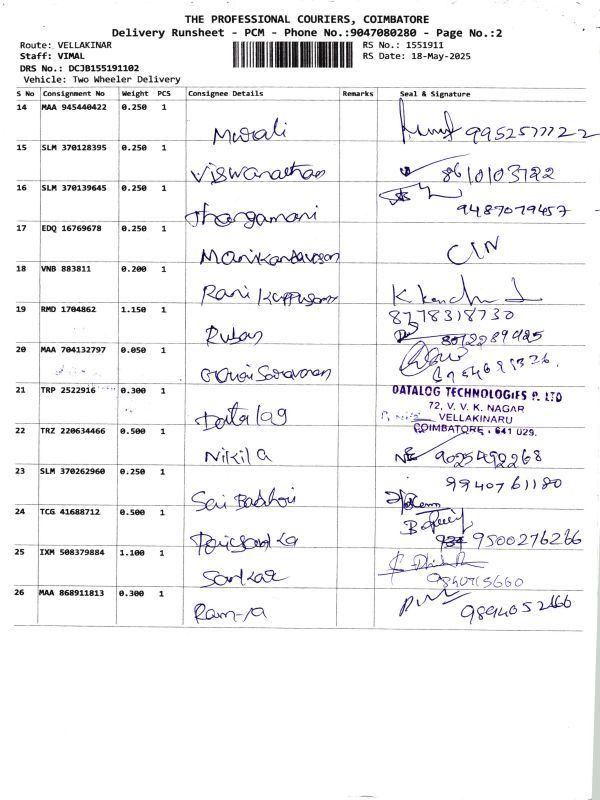 THE PROFESSIONAL COURIERS, COIMBATORE
Delivery Runsheet - PCM - Phone No.:9047080280 - Page No.:2
Route: VELLAKINAR
RS No.: 1551911
Staff: VIMAL
RS Date: 18-May-2025
DRS No.: DCJB155191102
Vehicle: Two Wheeler Delivery
S No Consignment No Weight PCS Consignee Details Remarks Seal & Signature
14 MAA 945440422 0.250 1
Murali 9952577122
15 SLM 370128395 0.250 1
Viswanathan 8610103722
16 SLM 370139645 0.250 1
Thangamani 9487079457
17 EDQ 16769678 0.250 1
Manikandavasan
18 VNB 883811 0.200 1
Rani Kuppusamy
8778318730
19 RMD 1704862 1.150 1
Ruban 8012289425
20 MAA 704132797 0.050 1
Saravanan
21 TRP 2522916 0.300 1
Datalog
DATALOG TECHNOLOGIES P. LTD
72, V. V. K. NAGAR
VELLAKINARU
COIMBATORE - 641 029.
22 TRZ 220634466 0.500 1
Nikila 9025492268
23 SLM 370262960 0.250 1
9940761180
Sai
24 TCG 41688712 0.500 1
9500276266
25 IXM 508379884 1.100 1
Sankar 9840715660
26 MAA 868911813 0.300 1
Ramya 9894052666